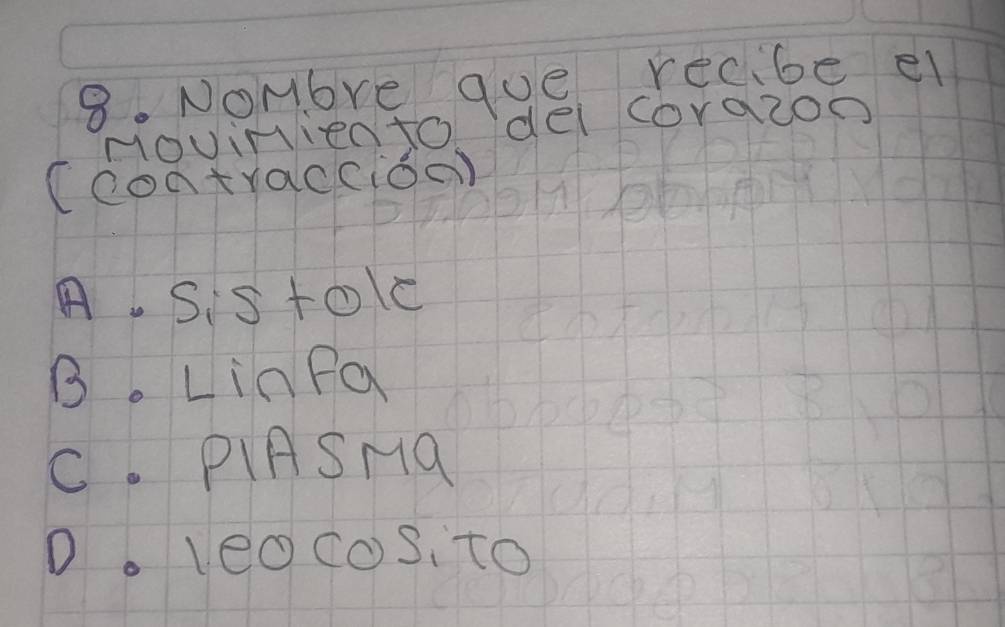 8. Nombre que recibe el
movimiento del corazon
(contracción)
A. Sistole
B. Linfa
C. PlASMa
D. leocosito